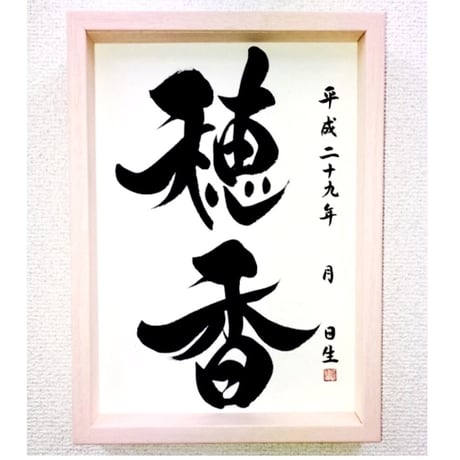 穂香
平成二十九年 月 日生